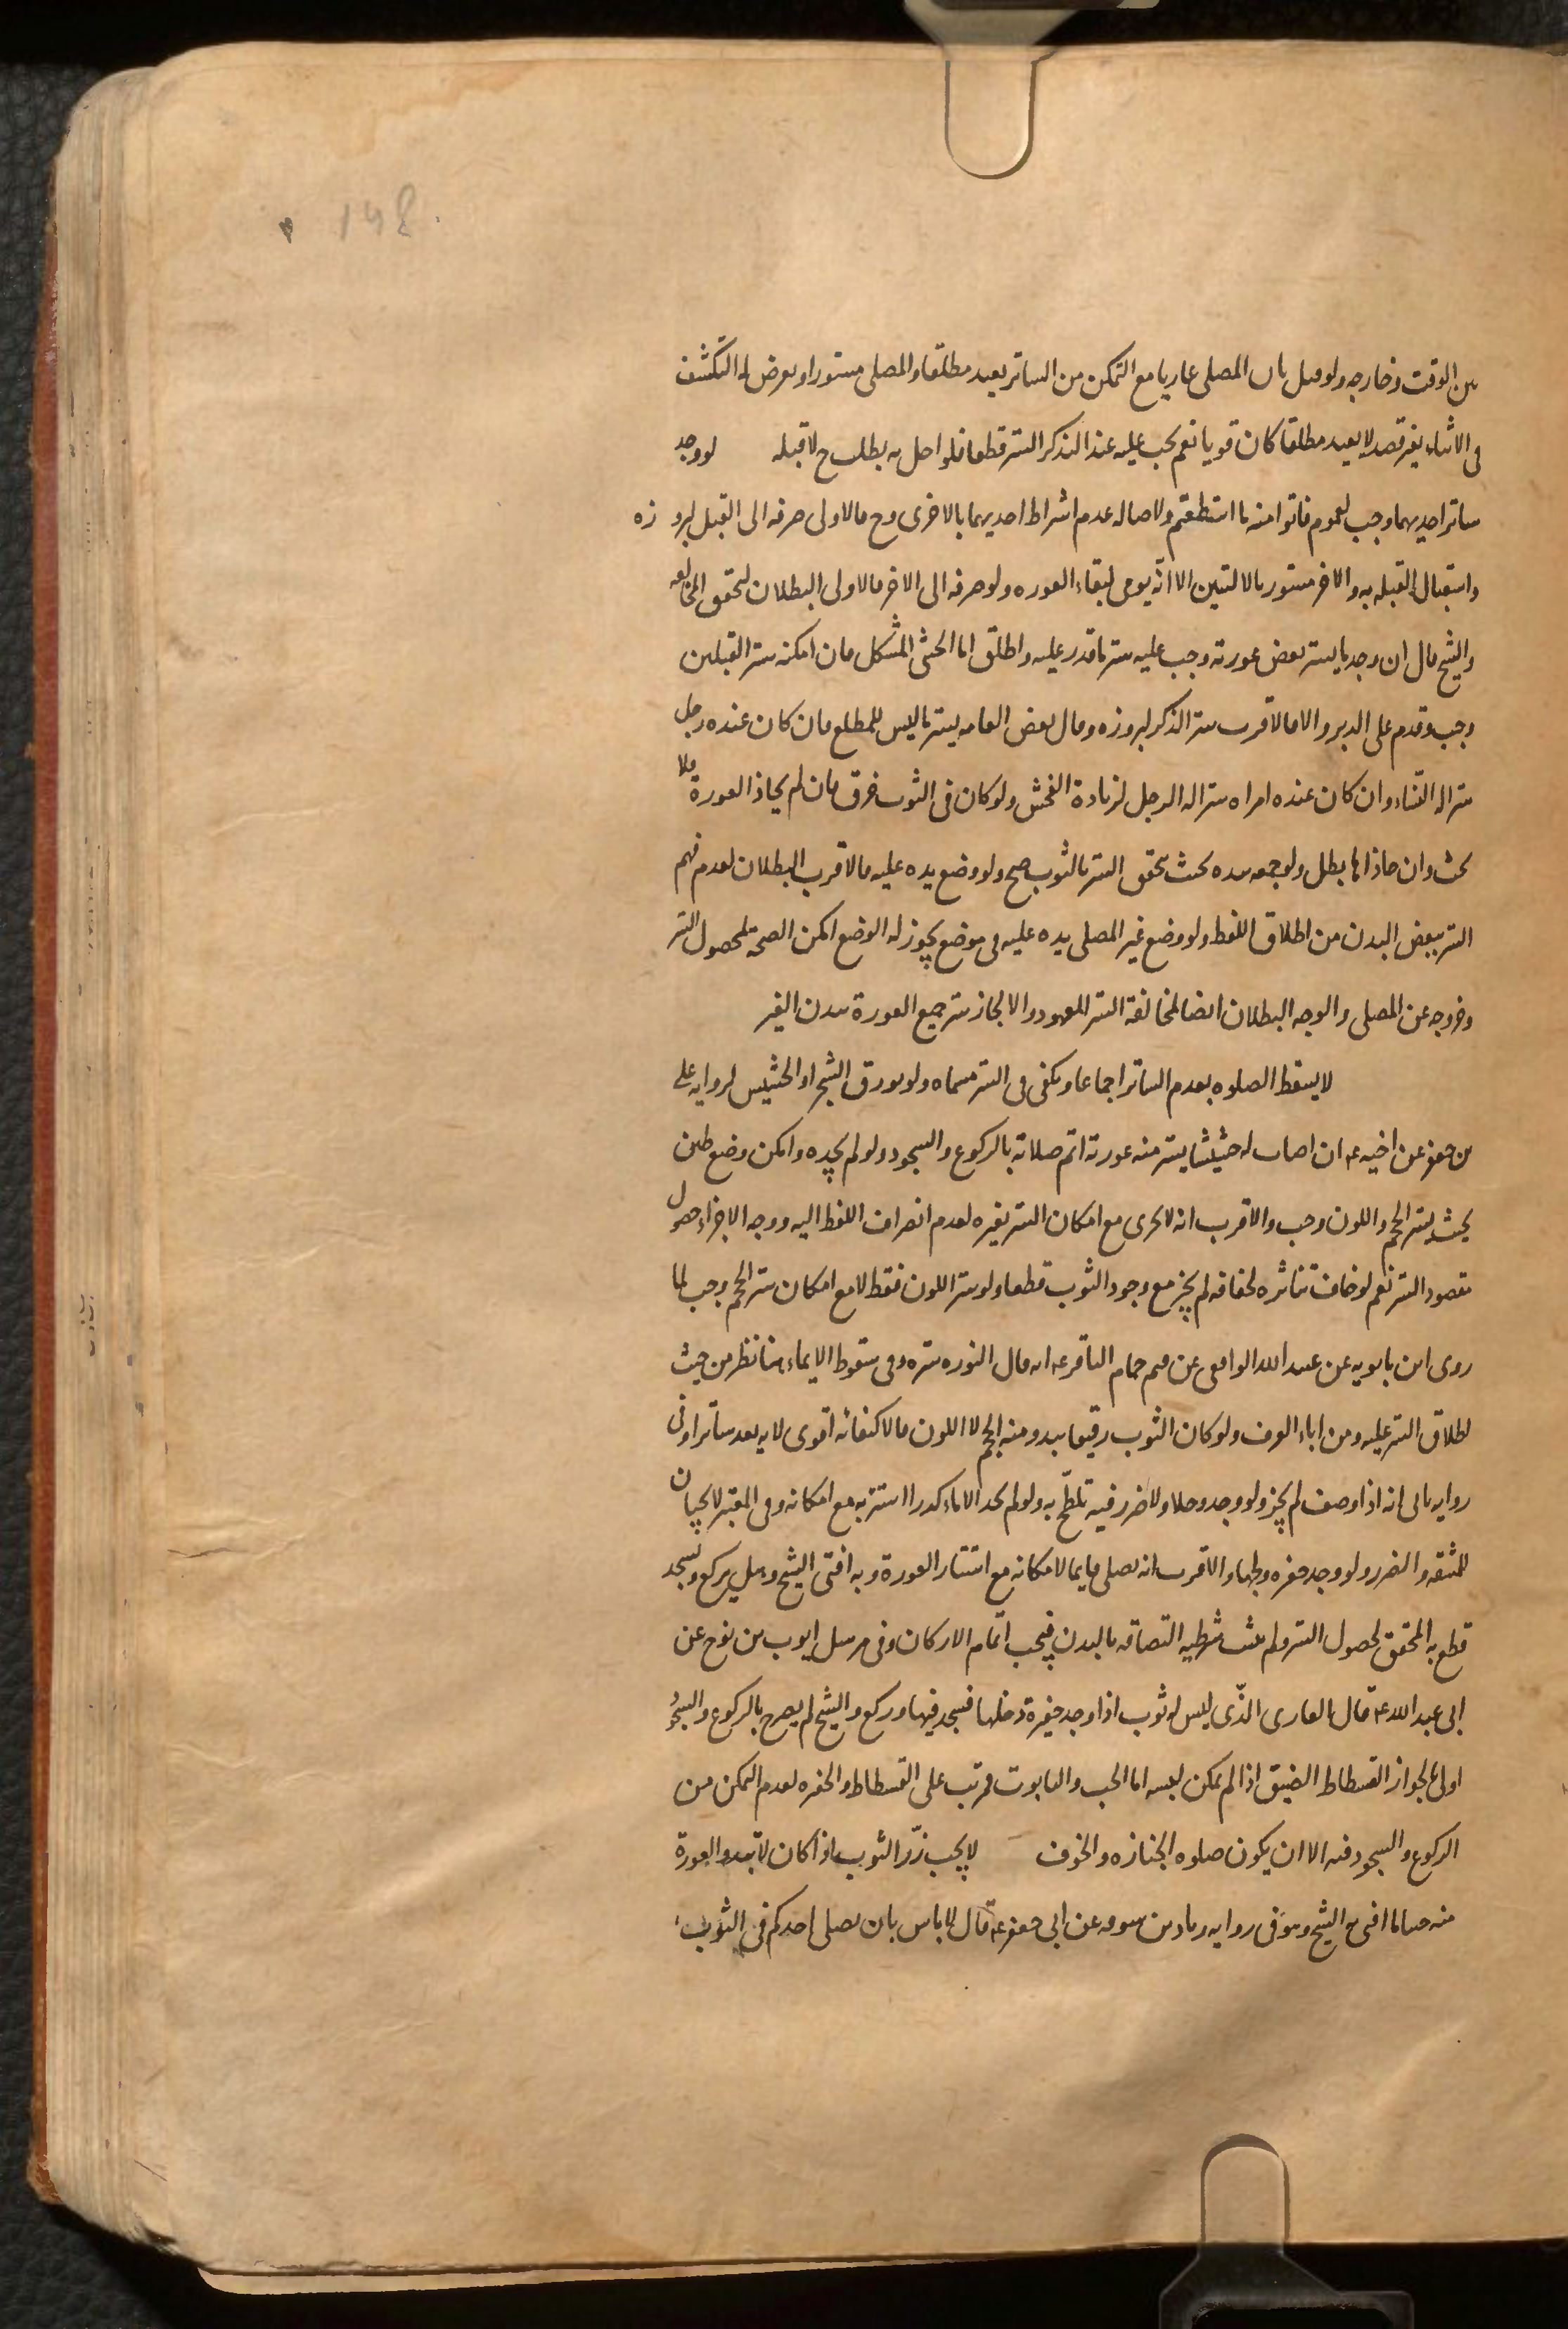 148
بين الوقت وخارجه ولو قيل بان المصلى عاريا مع التمكن من الساتر يعيد مطلقا والمصلى مستورا ويعرض له التكشف
فى الاثناء بغير قصد لا يعيد مطلقا كان قويا نعم يجب عليه عند التذكر الستر قطعا فلو اخل به بطلت ح لا قبله لو وجد
ساتر احديهما وجب لعموم فاتوا منه ما استطعتم ولاصاله عدم اشتراط احديهما بالاخرى وح فالاولى صرفه الى القبل لبروزه
واستقبال القبله به والاخر مستور بالاليتين الا انّه يومى لبقاء العوره ولو صرفه الى الاخر فالاولى البطلان لتحقق المخالفه
والشيخ قال ان وجد ما يستر بعض عورته وجب عليه ستر ما قدر عليه واطلق اما الخنثى المشكل فان امكنه ستر القبلين
وجب وقدم على الدبر والا فالاقرب ستر الذكر لبروزه وقال بعض العامه يستر ما ليس للمطلع فان كان عنده رجل
ستر اله النساء وان كان عنده امراه ستر اله الرجل لزيادة الفحش ولو كان فى الثوب خرق فان لم يحاذ العورة فلا
بحث وان حاذاها بطل ولو جمعه بيده بحيث تحقق الستر بالثوب صح ولو وضع يده عليه فالاقرب البطلان لعدم فهم
الستر ببعض البدن من اطلاق اللفظ ولو وضع غير المصلى يده عليه فى موضع يجوز له الوضع امكن الصحة لحصول الستر
وخروجه عن المصلى والوجه البطلان ايضا لمخالفة الستر المعهود والا لجاز ستر جميع العورة ببدن الغير
لا يسقط الصلوه بعدم الساتر اجماعا ويكفى فى الستر مسماه ولو بورق الشجر او الحشيش لروايه على
بن جعفر عن اخيه ع ان اصاب له حشيشا يستر منه عورته اتم صلاته بالركوع والسجود ولو لم يجده وامكن وضع طين
بحيث يستر الحجم واللون وجب والاقرب انه لا يجزى مع امكان الستر بغيره لعدم انصراف اللفظ اليه ووجه الاجزاء حصول
مقصود الستر نعم لو خاف تناثره لجفافه لم يجز مع وجود الثوب قطعا ولو ستر اللون فقط لا مع امكان ستر الحجم وجب لما
روى ابن بابويه عن عبيد الله الواقعى عن قيم حمام الباقر ع انه قال النوره ستره وفى سقوط الايماء هنا نظر من حيث
اطلاق الستر عليه ومن اباء العرف ولو كان الثوب رقيقا يبدو منه الحجم لا اللون فالاكتفاء به اقوى لانه يعد ساترا وفى
روايه بالى انه اذا وصف لم يجز ولو وجد وحلا ولا ضرر فيه تلطّخ به ولو لم يجد الا ماء كدرا استتر به مع امكانه وفى المعتبر لا يجبان
للمشقه والضرر ولو وجد حفره ولجها والاقرب انه يصلى قايما لامكانه مع استتار العورة وبه افتى الشيخ وهل يركع ويسجد
قطع به المحقق لحصول الستر ولم يثبت شرطيه التصاقه بالبدن فيجب اتمام الاركان وفى مرسل ايوب بن نوح عن
ابى عبد الله ع قال العارى الذّى ليس له ثوب اذا وجد حفيرة دخلها فسجد فيها وركع والشيخ لم يصرح بالركوع والسجود
اولى بالجواز الفسطاط الضيق اذا لم يمكن لبسه اما الحب والتابوت فمرتب على الفسطاط والحفره لعدم التمكن من
الركوع والسجود فيه الا ان يكون صلوه الجنازه والخوف لا يجب زرّ الثوب اذا كان لا تبدو العورة
منه حينا ما افتى به الشيخ وهو فى روايه زياد بن سوقه عن ابى جعفر ع قال لا باس بان يصلى احدكم فى الثوب